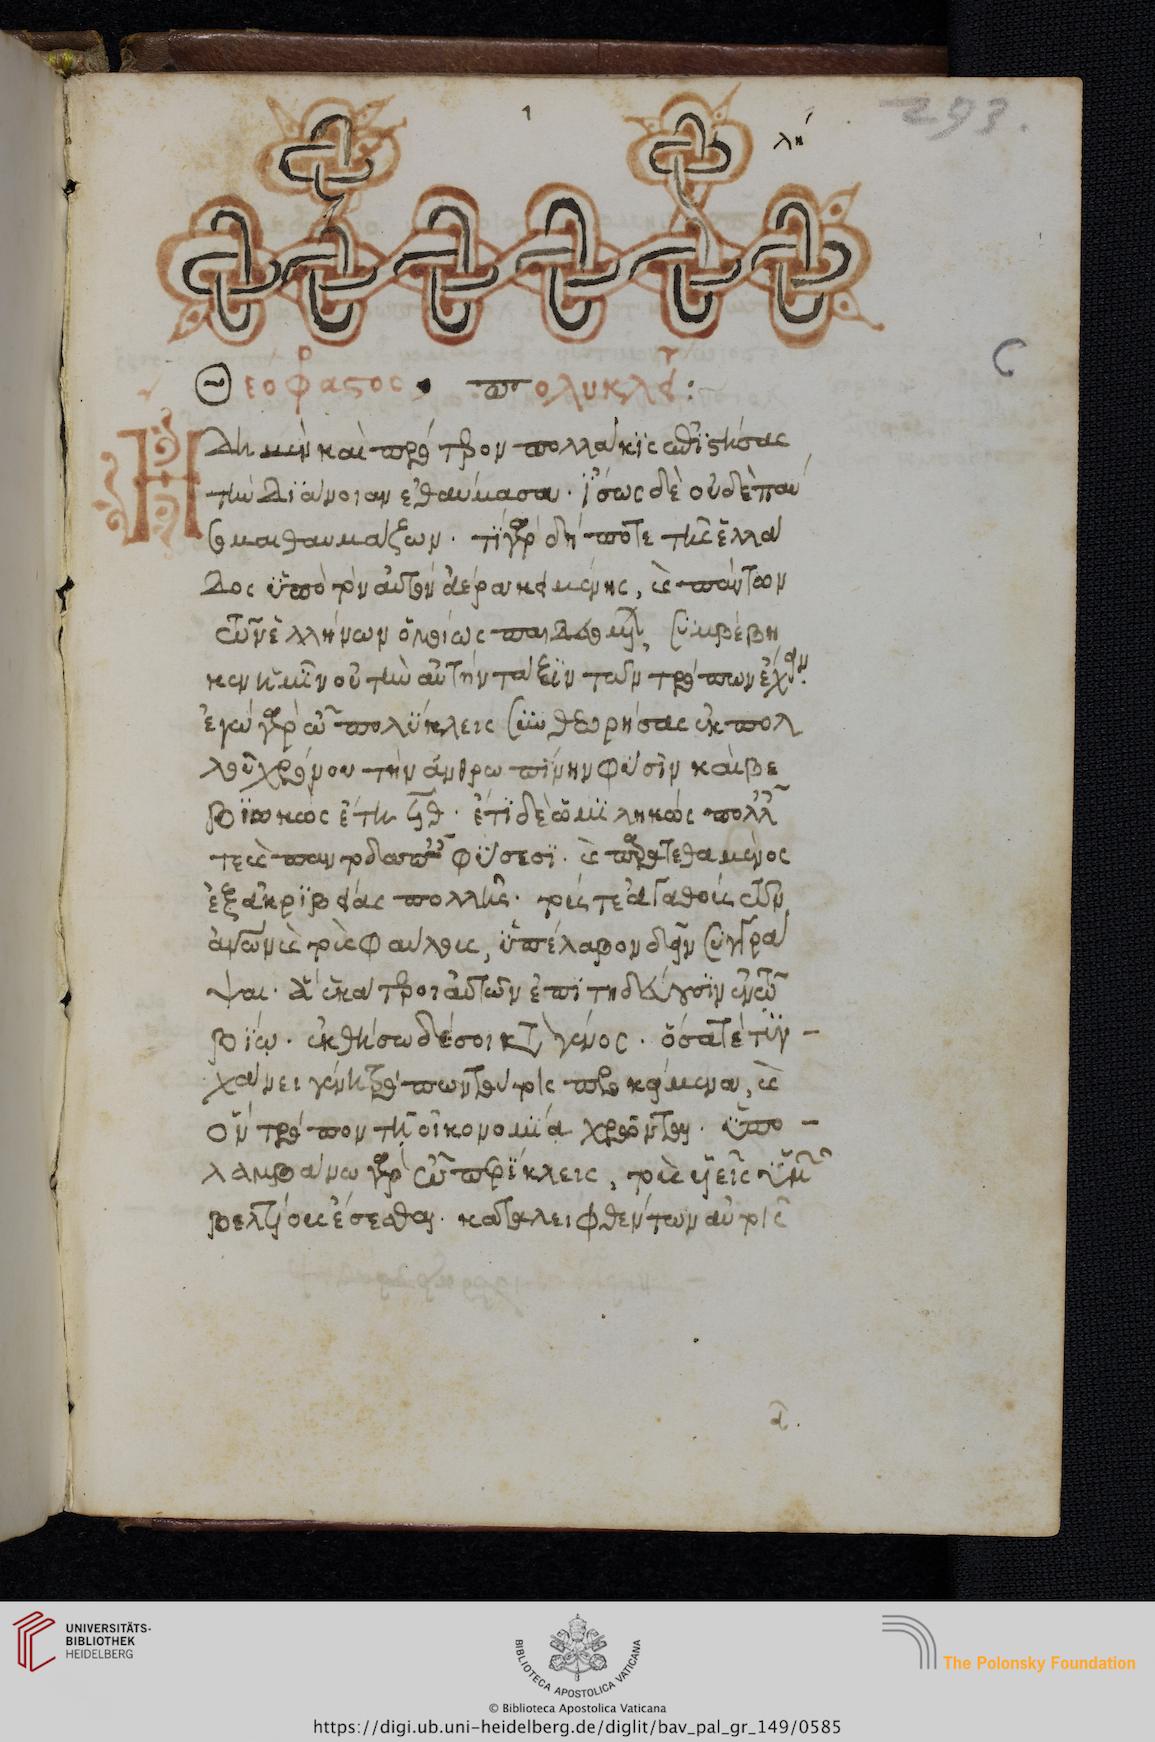 1
λη´
293.
Θεόφραστος πολυκλεῖ:
Ἤδη μὲν καὶ πρότερον πολλάκις ἐπιστήσας
τὴν διάνοιαν ἐθαύμασα· ἴσως δὲ οὐδὲ παύ
σομαι θαυμάζων· τί γὰρ δήποτε τῆς ἑλλά
δος ὑπὸ τὸν αὐτὸν ἀέρα κειμένης, καὶ πάντων
τῶν ἑλλήνων ὁμοίως παιδευομένων, συμβέβη
κεν ἡμῖν οὐ τὴν αὐτὴν τάξιν τῶν τρόπων ἔχειν.
ἐγὼ γὰρ ὦ πολύκλεις συνθεωρήσας ἐκ πολ
λοῦ χρόνου τὴν ἀνθρωπίνην φύσιν καὶ βε
βιωκὼς ἔτη ϟθ· ἔτι δὲ ὡμιληκὼς πολλαῖς
τε καὶ παντοδαπαῖς φύσεσι· καὶ παρατεθεαμένος
ἐξ ἀκριβείας πολλῆς· τούς τε ἀγαθοὺς τῶν
ἀνθρώπων καὶ τοὺς φαύλους, ὑπέλαβον δεῖν συγγρά
ψαι· ἃ ἑκάτεροι αὐτῶν ἐπιτηδεύουσιν ἐν τῷ
βίῳ· ἐκθήσω δέ σοι κατὰ γένος· ὅσα τε τυγ-
χάνει γένη τρόπων τούτοις προσκείμενα, καὶ
ὃν τρόπον τῇ οἰκονομίᾳ χρῶνται· ὑπο-
λαμβάνω γὰρ ὦ πολύκλεις, τοὺς υἱεῖς ἡμῶν
βελτίους ἔσεσθαι· καταλειφθέντων αὐτοῖς
UNIVERSITÄTS-
BIBLIOTHEK
HEIDELBERG
BIBLIOTECA APOSTOLICA VATICANA
The Polonsky Foundation
© Biblioteca Apostolica Vaticana
https://digi.ub.uni-heidelberg.de/diglit/bav_pal_gr_149/0585